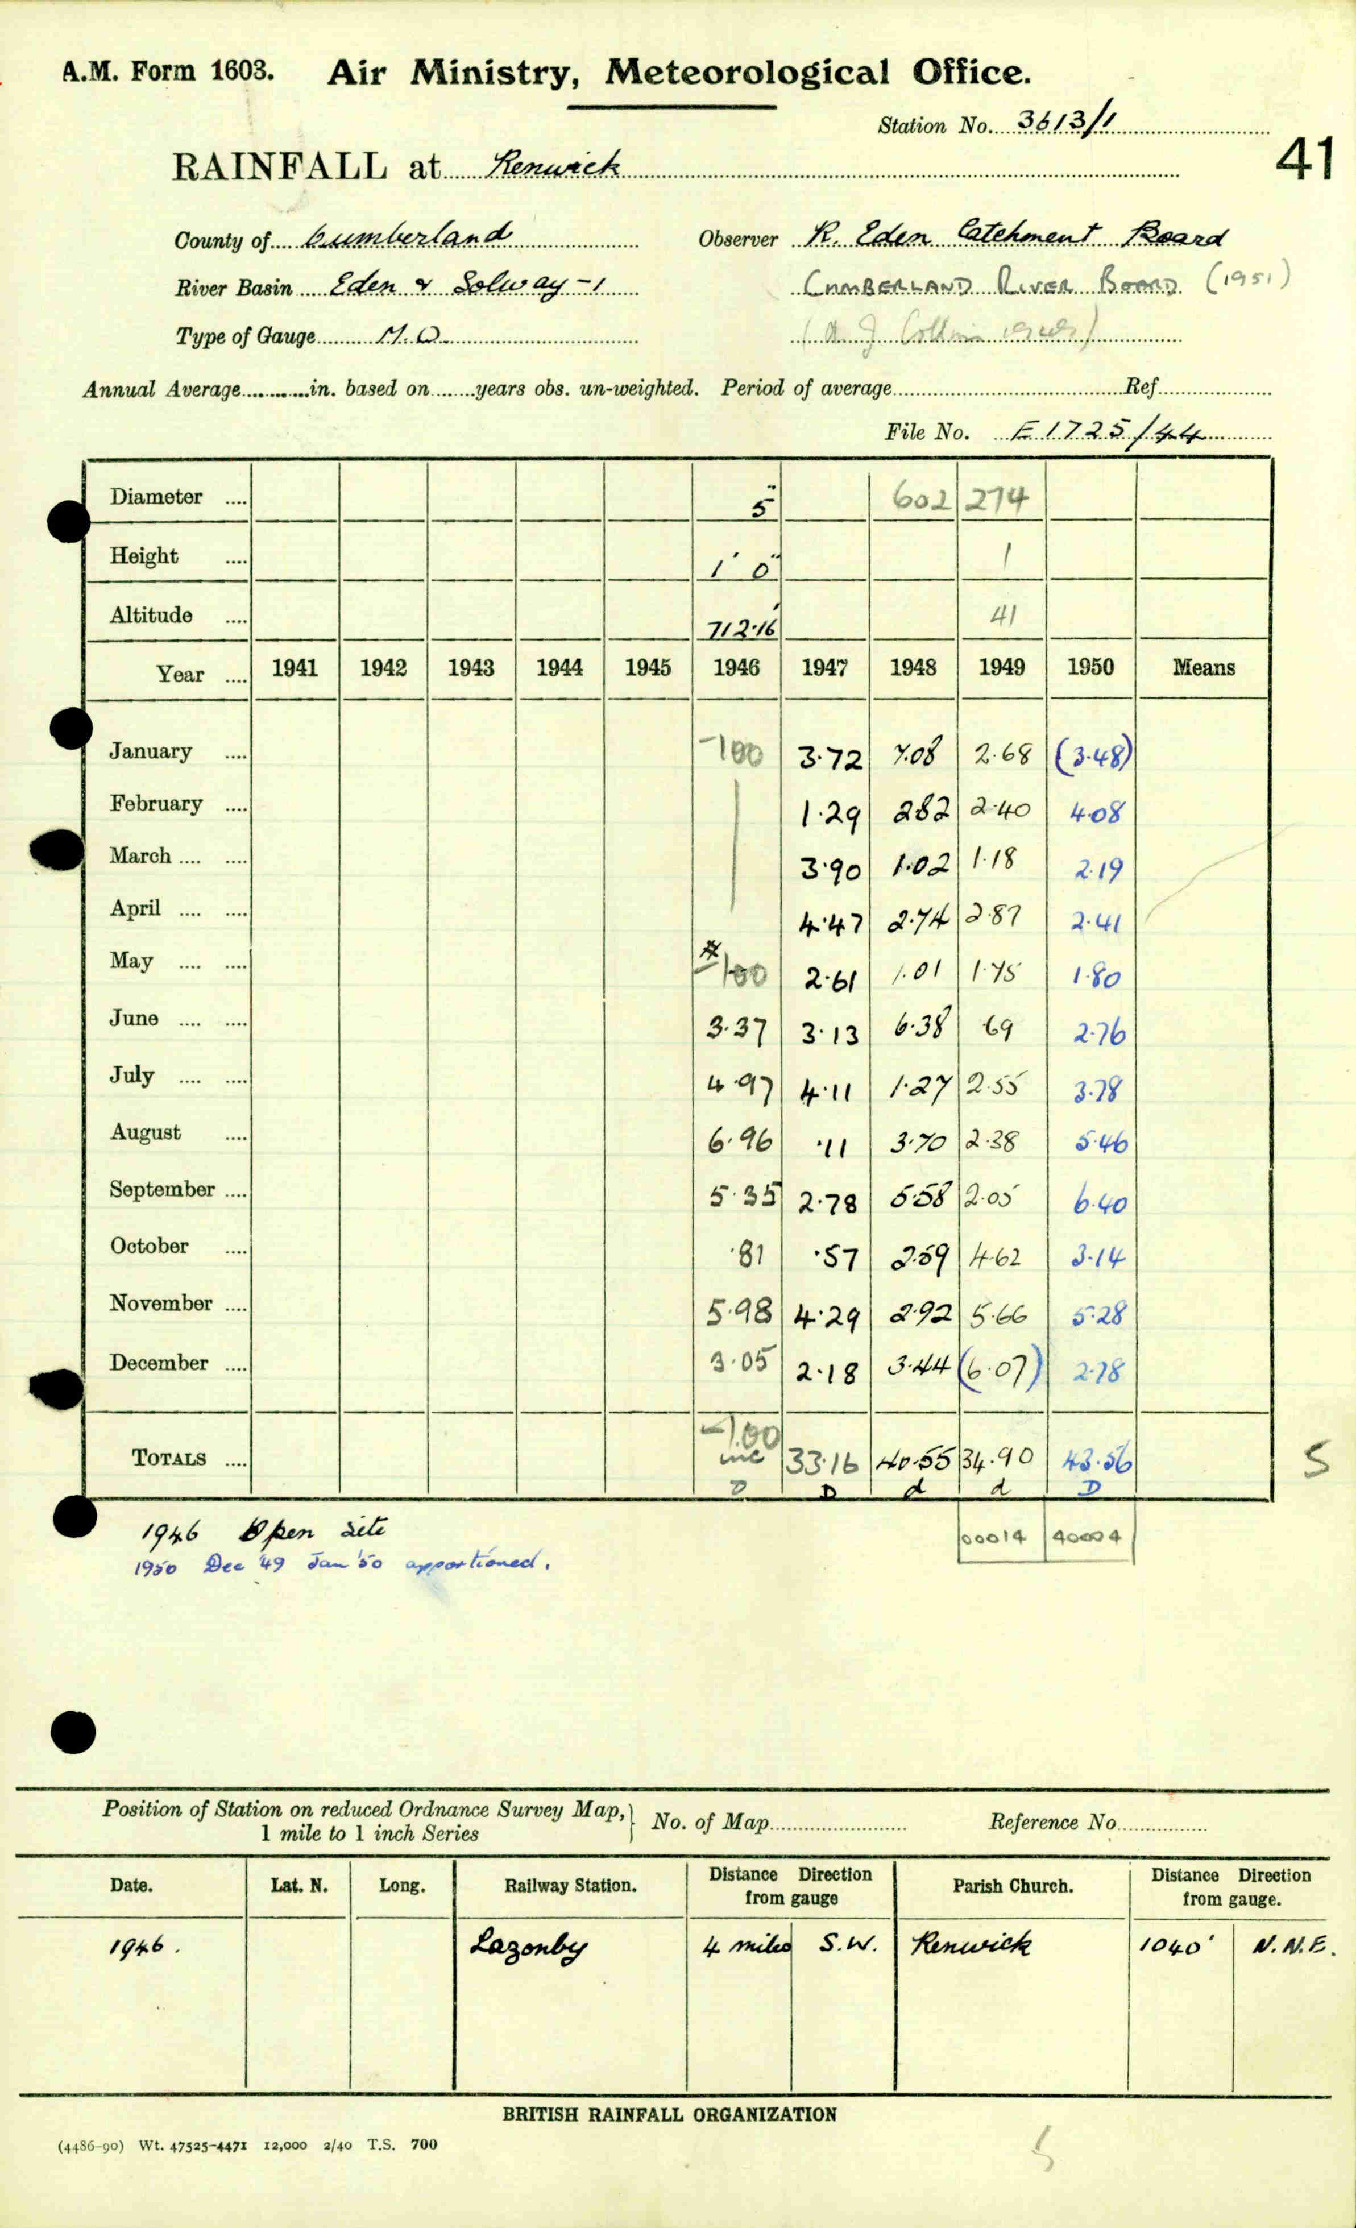 A.M. Form 1603. Air Ministry, Meteorological Office.
Station No. 3613/1
41
RAINFALL at Renwick
County of Cumberland Observer R. Eden Catchment Board
River Basin Eden & Solway-1 CUMBERLAND RIVER BOARD (1951)
Type of Gauge M.O.
Annual Average in. based on years obs. un-weighted. Period of average Ref.
File No. E1725/44
Diameter 5" 602 274
Height 1' 0" 1
Altitude 712.16' 41
Year 1941 1942 1943 1944 1945 1946 1947 1948 1949 1950 Means
January -100 3.72 7.08 2.68 (3.48)
February 1.29 2.82 2.40 4.08
March 3.90 1.02 1.18 2.19
April 4.47 2.74 2.87 2.41
May * -100 2.61 1.01 1.75 1.80
June 3.37 3.13 6.38 .69 2.76
July 4.97 4.11 1.27 2.55 3.78
August 6.96 .11 3.70 2.38 5.46
September 5.35 2.78 5.58 2.05 6.40
October .81 .57 2.59 4.62 3.14
November 5.98 4.29 2.92 5.66 5.28
December 3.05 2.18 3.44 (6.07) 2.78
-1.00
TOTALS inc 33.16 40.55 34.90 43.56 5
D D d d D
1946 Open site 00014 40004
1950 Dec '49 Jan '50 apportioned.
Position of Station on reduced Ordnance Survey Map, 1 mile to 1 inch Series No. of Map Reference No.
Date. Lat. N. Long. Railway Station. Distance Direction from gauge Parish Church. Distance Direction from gauge.
1946. Lazonby 4 miles S.W. Renwick 1040' N.N.E.
BRITISH RAINFALL ORGANIZATION
(4486-90) Wt. 47525-4471 12,000 2/40 T.S. 700
5